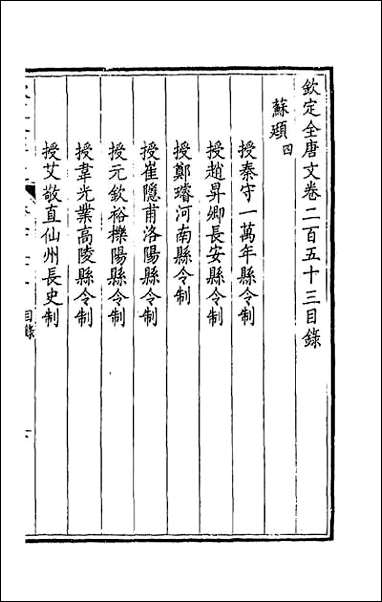 欽定全唐文卷二百五十三目錄
蘇頲四
授秦守一萬年縣令制
授趙昇卿長安縣令制
授鄭璿河南縣令制
授崔隱甫洛陽縣令制
授元欽裕櫟陽縣令制
授韋光業高陵縣令制
授艾敬直仙州長史制
目錄